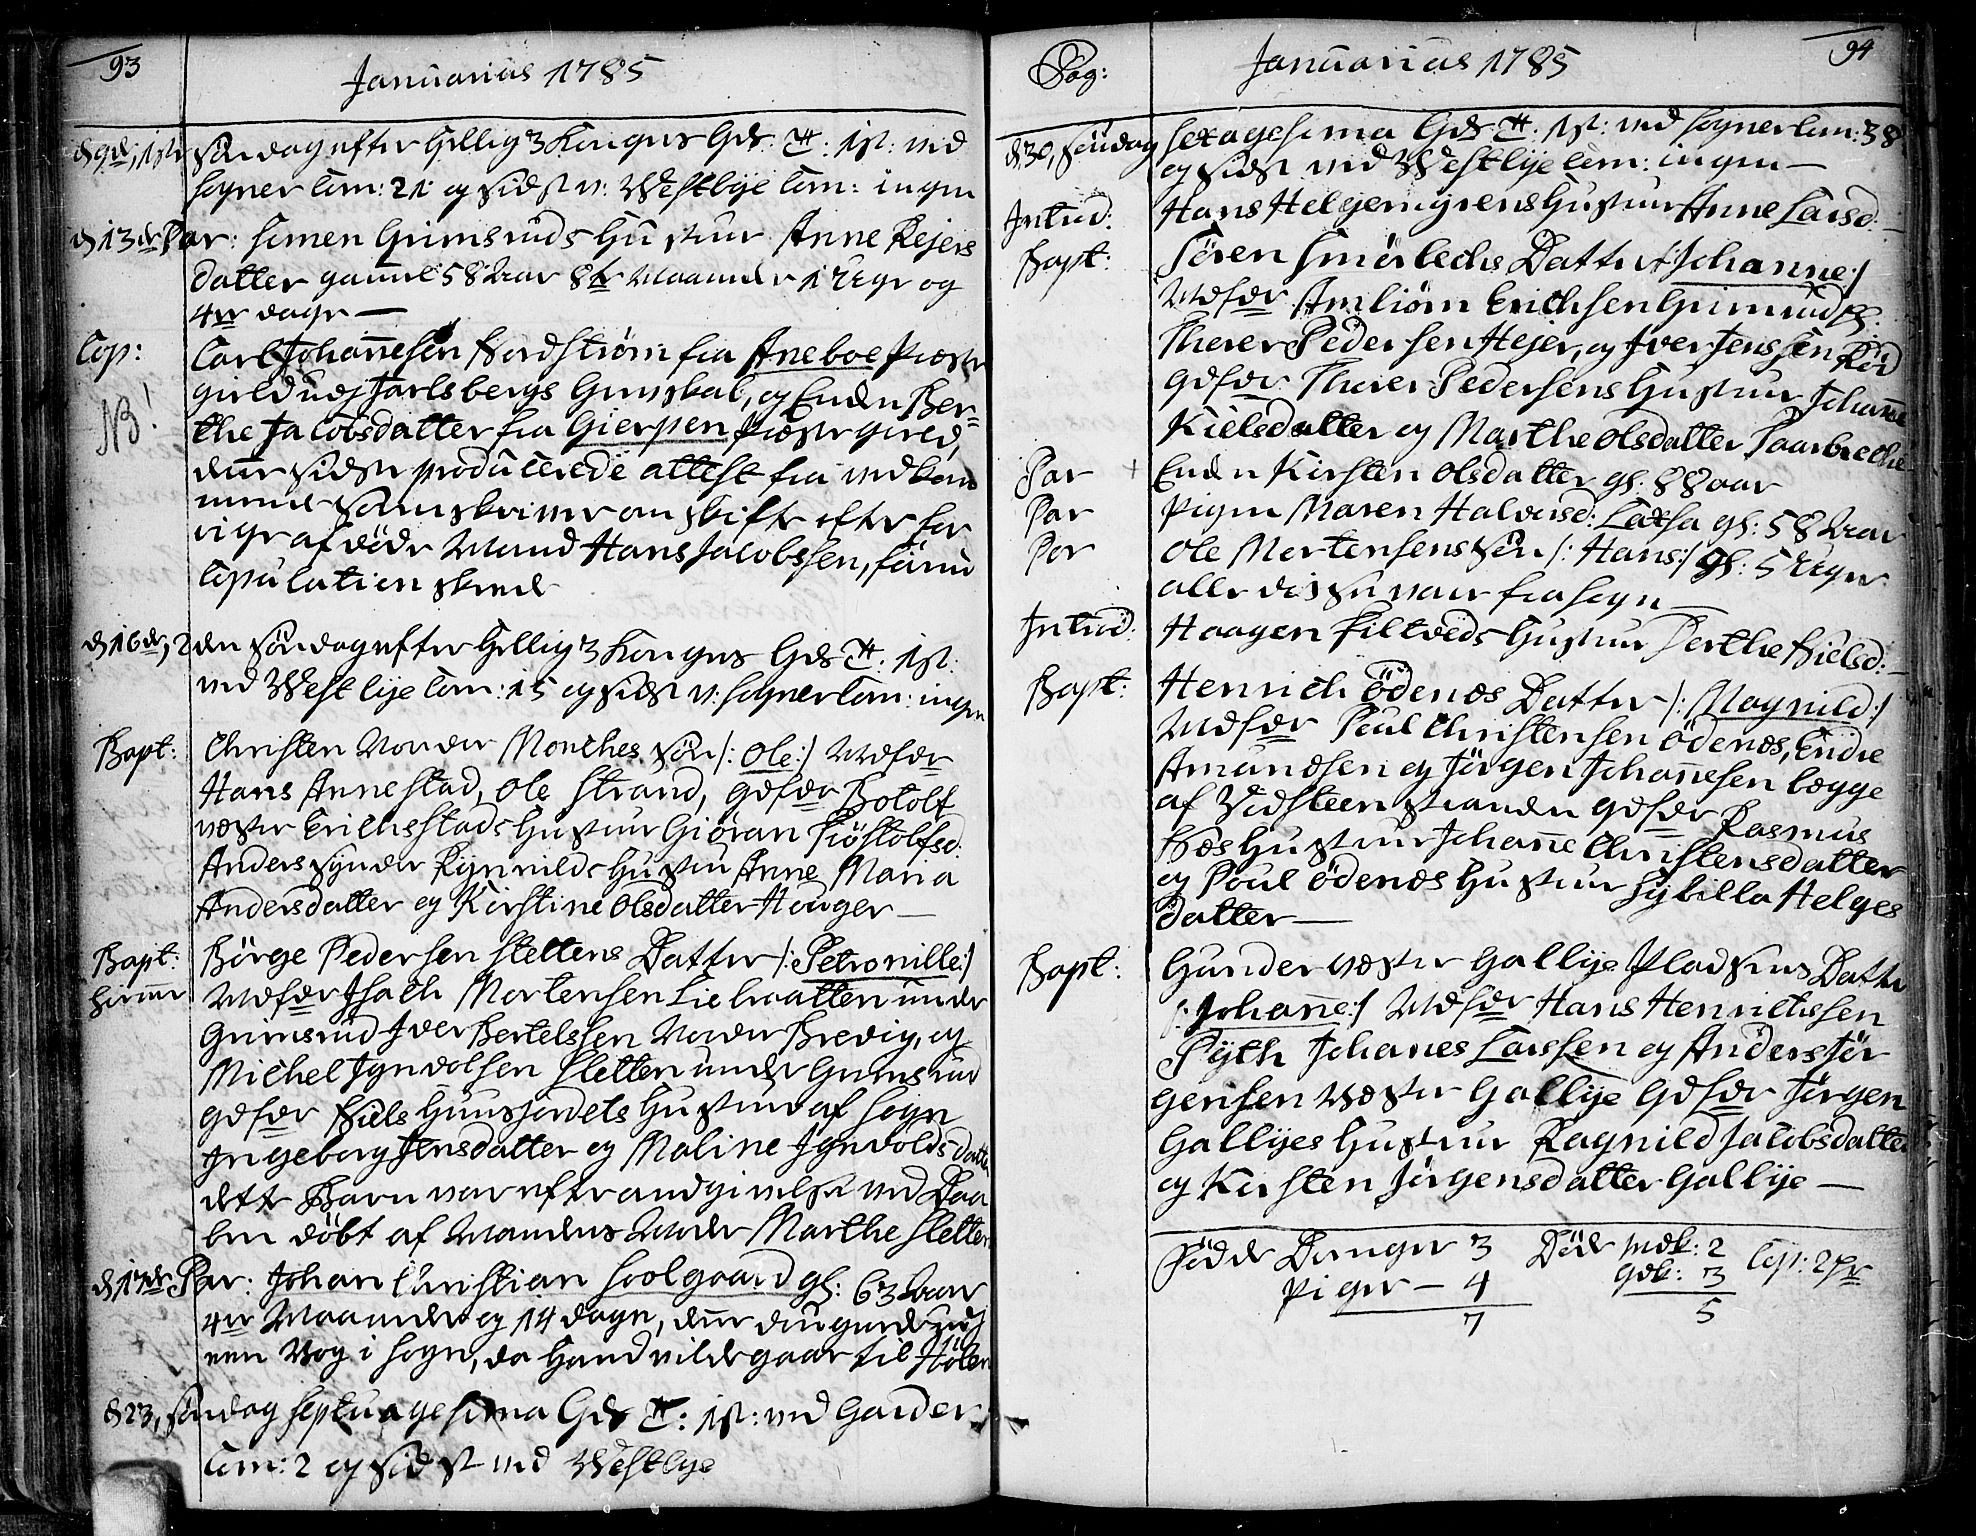 93
Januarius 1785
d 9de, 1ste Söndag efter Hellig 3 Konger Gds: T: 1st: ved
Sogner Com: 21 og sidst v: Westbye Com: ingen
d 13de Par: Simen Grimsruds Hustrue Anne Rejers
datter gamel 58 Aar 8te Maaneder 1 Uge og
4re dage —
Cop: Carl Johannesen Nordstrøm fra Aneboe Præste
gield udj Jarlsbergs Grevskab, og Enken Ber=
NB! the Jacobsdatter fra Gierpen Præstegield,
denne sidste producerede attest fra vedkom
mende Sorenskriver om skifte efter for
rige afdøde Mand Hans Jacobssen, førend
Copulation skeede
d 16de, 2den Söndag efter Hellig 3 Konger Gds T. 1st:
ved Westbye Com: 15 og sidst v: Sogner Com: ingen
Bapt: Christen Norder Monches Søn /: Ole :/ Mdfdr
Hans Annestad, Ole Strand, Gdfdr Botolf
Wester Erichsstads Hustrue Giøran Siöstolfsd:
Anders Synder Rynnilds Hustrue Anne Maria
Andersdatter og Kirstine Olsdatter Houger —
Bapt: Börge Pedersen Slettens Datter /: Petronille :/
hiemme Mdfdr Isach Mortensen Liebraatten under
Grimsrud Iver Bertelssen Norder Brevig, og
Michel Ingvolsen Sletten under Grimsrud
Gdfdr Niels Huusjordets Hustrue af Sogn
Ingeborg Jensdatter og Maline Ingvoldsdatter
dette Barn var efter angivelse ved Daa
ben döbt af Mandens Moder Marthe Sletten
d 17de Par: Johan Christian Soolgaard gl: 63 Aar
4re Maaneder og 14 dage, denne dagde udj
een Vog i Sogn, da Hand vilde gaae til Hölen
d 23, Söndag Septuagesima Gds T: 1st: ved Garder
Com: 2 og sidst ved Westbye
Pag:
Januarius 1785
94
d 30, Söndag Sexagesima Gds T: 1st: ved Sogner Com: 38
og sidst ved Westbye Com: ingen —
Introd: Hans Helgerngrens Hustrue Anne Larsd: —
Bapt: Sören Smörbechs Datter /: Johanne :/
Mdfdr Anbiörn Erichsen Grimsrud
Therer Pedersen Hejer, og Iver Jenssen Rød
Gdfdr Therer Pedersens Hustrue Johanne
Kielsdatter og Marthe Olsdatter Paarbrethe
Par Enken Kirsten Olsdatter gl: 88 aar
Par Pigen Maren Halvorsd: Laxsa gl: 58 Aar
Par Ole Mortensens Søn /: Hans :/ gl: 5 Uger
alle disse vare fra Sogn —
Introd: Haagen Filtveds Hustrue Berthe Nielsd: —
Bapt: Henrich Ödenæs Datter /: Magnild :/
Mdfdr Poul Christensen Ödenæs, Endre
Amundsen og Jörgen Johannesen begge
af Vidsteen Stranden Gdfdr Rasmus
Næs Hustrue Johanne Christensdatter
og Poul Ödenæs Hustrue Sybilla Helges
datter —
Bapt: Gunder Wester Gallbye Pladsens Datter
/: Johanne :/ Mdfdr Hans Henrichssen
Pÿth Johanes Larssen og Anders Jör
gensen Wester Gallbye Gdfdr Jörgen
Gallbyes Hustrue Ragnild Jacobsdatter
og Kirsten Jörgensdatter Gallbye —
Födde Drenger 3 Döde Mdk: 2 Cop: 2 Pr
Piger — 4 Qdk: 3
7 5